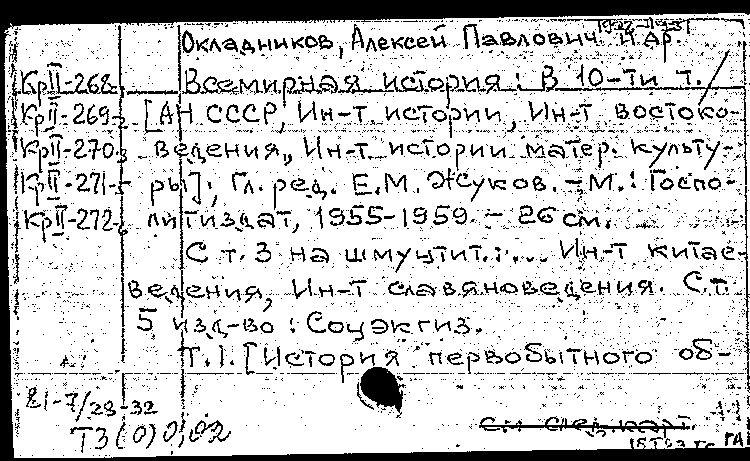 Окладников, Алексей Павлович и др.
КрII-268-1 Всемирная история: В 10-ти т. /
КрII-269-2 [АН СССР, Ин-т истории, Ин-т востоко-
КрII-270-3 ведения, Ин-т истории матер. культу-
КрII-271-5 ры]; Гл. ред. Е.М. Жуков. - М.: Госпо-
КрII-272-6 литиздат, 1955-1959. - 26 см.
С т. 3 на шмуцтит.: ... Ин-т китае-
ведения, Ин-т славяноведения. С т.
5 изд-во: Соцэкгиз.
Т. 1. [История первобытного об-
81-7/28-32
Т3(0)0,02
См след. карт.